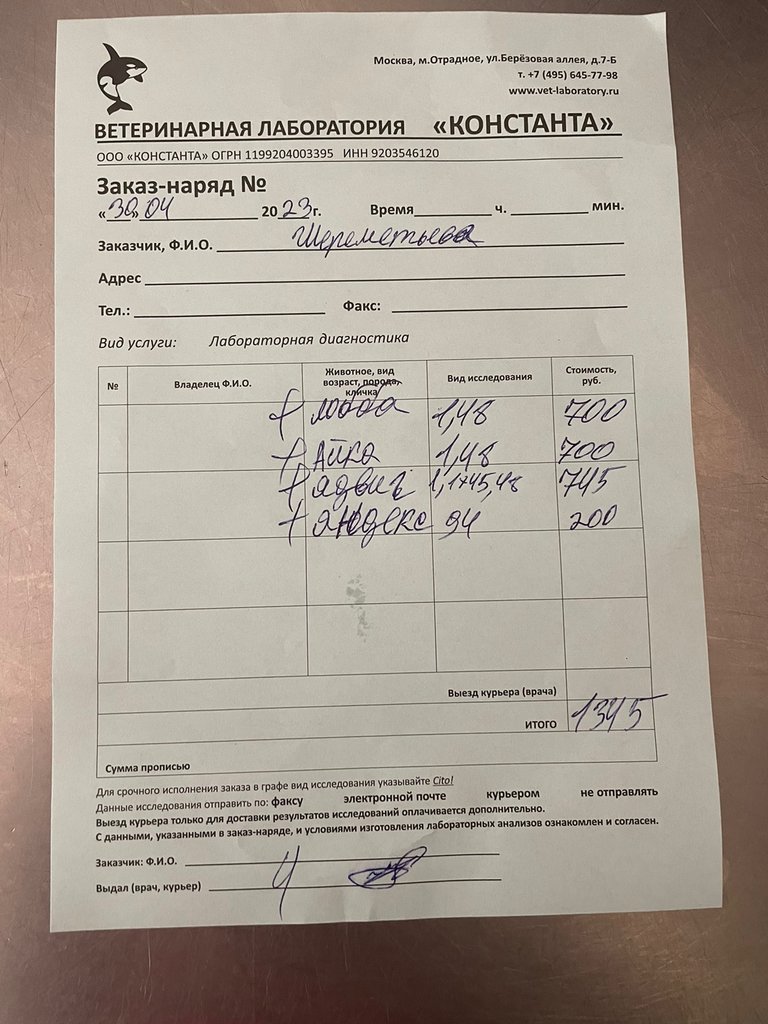 Москва, м.Отрадное, ул.Берёзовая аллея, д.7-Б
т. +7 (495) 645-77-98
www.vet-laboratory.ru
ВЕТЕРИНАРНАЯ ЛАБОРАТОРИЯ «КОНСТАНТА»
ООО «КОНСТАНТА» ОГРН 1199204003395 ИНН 9203546120
Заказ-наряд №
«30» 04 2023г. Время ч. мин.
Заказчик, Ф.И.О. Шереметьева
Адрес
Тел.: Факс:
Вид услуги: Лабораторная диагностика
№ Владелец Ф.И.О. Животное, вид возраст, порода, кличка Вид исследования Стоимость, руб.
+ 1,48 700
+ Айка 1,48 700
+ Ядвига 1,1+45,48 745
+ Яндекс 94 200
Выезд курьера (врача)
ИТОГО 1345
Сумма прописью
Для срочного исполнения заказа в графе вид исследования указывайте Cito!
Данные исследования отправить по: факсу электронной почте курьером не отправлять
Выезд курьера только для доставки результатов исследований оплачивается дополнительно.
С данными, указанными в заказ-наряде, и условиями изготовления лабораторных анализов ознакомлен и согласен.
Заказчик: Ф.И.О.
Выдал (врач, курьер)